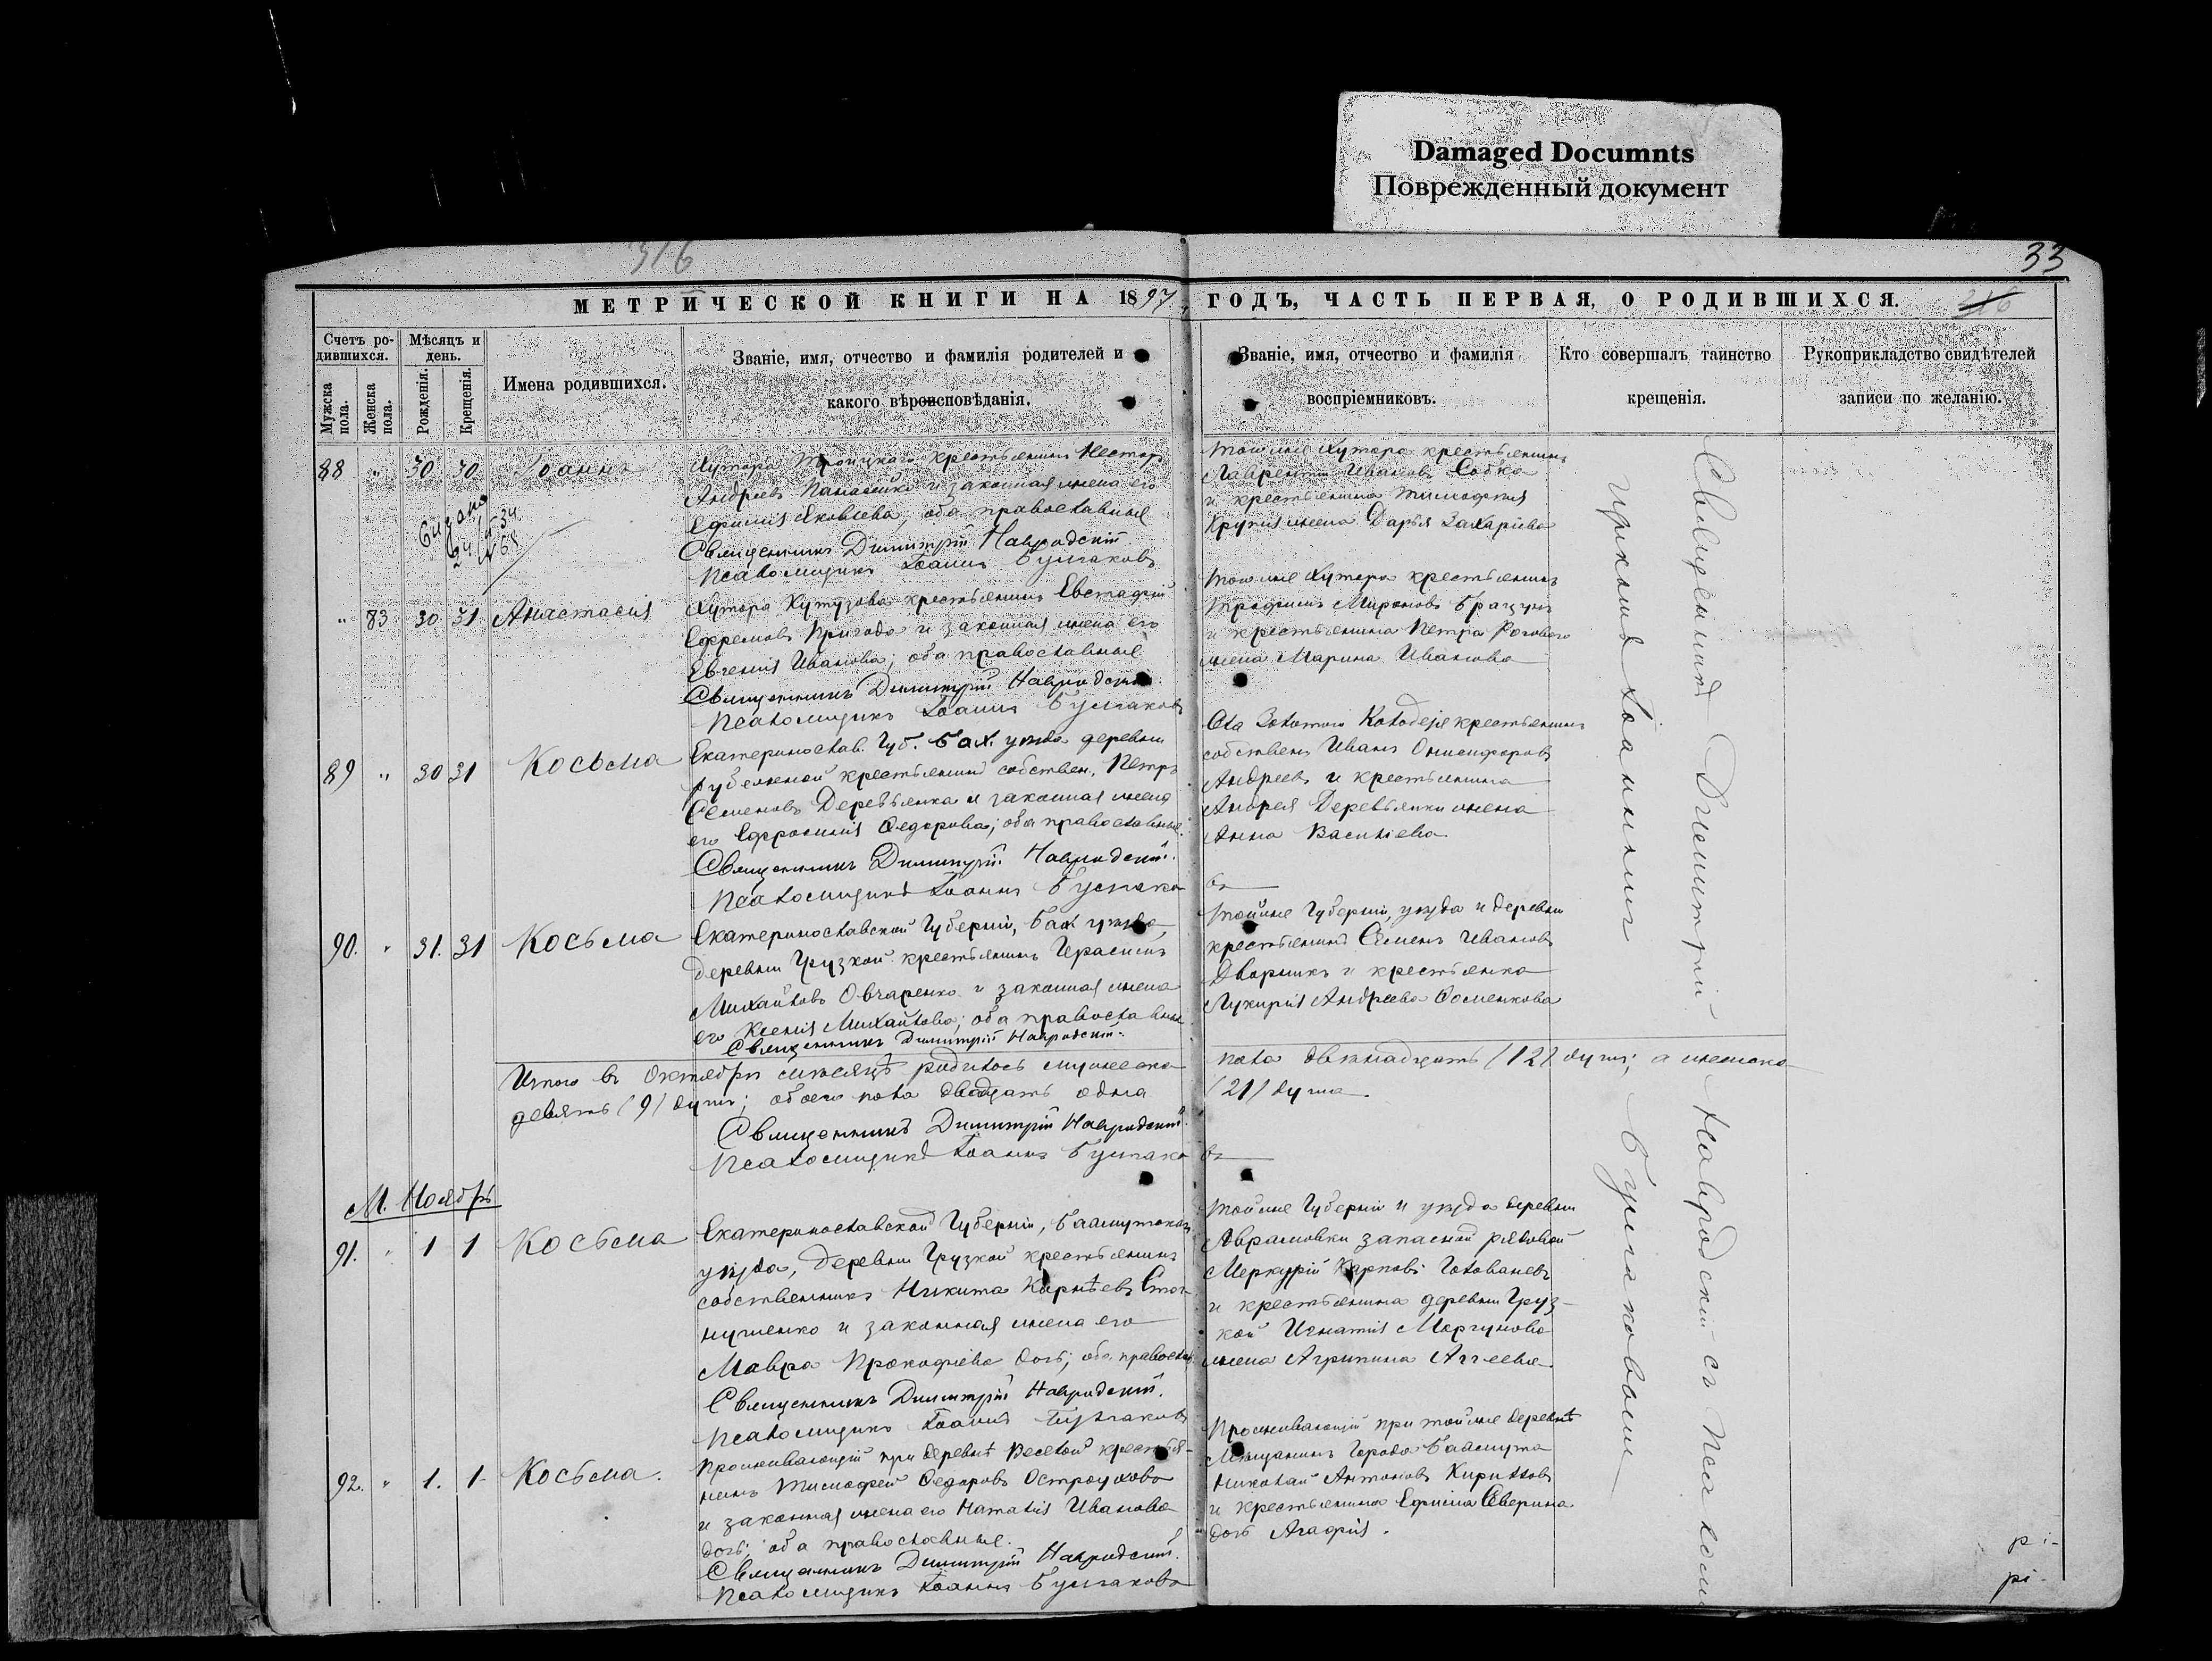 Damaged Documnts
Поврежденный документ
316
33
МЕТРИЧЕСКОЙ КНИГИ НА 1897 ГОДЪ, ЧАСТЬ ПЕРВАЯ, О РОДИВШИХСЯ.
316
Счетъ ро-
дившихся.
Мужска
пола.
Женска
пола.
Мѣсяцъ и
день.
Рожденія.
Крещенія.
Имена родившихся.
Званіе, имя, отчество и фамилія родителей и
какого вѣроисповѣданія.
Званіе, имя, отчество и фамилія
воспріемниковъ.
Кто совершалъ таинство
крещенія.
Рукоприкладство свидѣтелей
записи по желанію.
88 " 30 30 Іоаннъ
Хутора Троицкаго крестьянинъ Несторъ
Андреевъ Панасейко и законная жена его
Ефимія Яковлева, оба православные
Священникъ Димитрій Навродскій
Псаломщикъ Іоаннъ Булгаковъ
Тогоже Хутора крестьянинъ
Лаврентій Ивановъ Собка
и крестьянина Тимофея
жена Дарья Захаріева
" 83 30 31 Анастасія
Хутора Кутузова крестьянинъ Евстафій
Ефремовъ Пригода и законная жена его
Евгенія Иванова; оба православные
Священникъ Димитрій Навродскій
Псаломщикъ Іоаннъ Булгаковъ
Тогоже Хутора крестьянинъ
Трофимъ Мироновъ
и крестьянина Петра Рогового
жена Марина Иванова
89 " 30 31 Косьма
Екатеринослав. Губ. Бах. уѣзда деревни
крестьянинъ собствен. Петръ
Семеновъ Деревьянка и законная жена
его Ефросинія Федорова; оба православные.
Священникъ Димитрій Навродскій.
Псаломщикъ Іоаннъ Булгаковъ
собствен. Иванъ Онисифоровъ
Андреевъ и крестьянина
Андрея Деревьянки жена
Анна Василіева
90. " 31. 31 Косьма
Екатеринославской Губерніи, Бах уѣзда,
деревни Грузкой крестьянинъ Герасимъ
Михайловъ Овчаренко и законная жена
его Ксенія Михайлова; оба православные
Священникъ Димитрій Навродскій.
Тойже Губерніи, уѣзда и деревни
крестьянинъ Семенъ Ивановъ
Дворникъ и крестьянка
Лукирія Андреева Фоменкова
Итого въ Октябрѣ мѣсяцѣ родилось мужеска пола двѣнадцать (12) душъ; а женска
девять (9) душъ; обоего пола двадцать одна (21) душа.
Священникъ Димитрій Навродскій.
Псаломщикъ Іоаннъ Булгаковъ
М. Ноябрь
91. " 1 1 Косьма
Екатеринославской Губерніи, Бахмутскаго
уѣзда, деревни Грузкой крестьянинъ
собственникъ Никита Карнѣевъ
и законная жена его
Мавра Прокофіева дочь; оба православ.
Священникъ Димитрій Навродскій.
Псаломщикъ Іоаннъ Булгаковъ
Тойже Губерніи и уѣзда деревни
Аврамовки запасной рядовой
Меркурій Карповъ
и крестьянина деревни Груз-
кой Игнатія Моргунова
жена Агрипина Аггеевна
92. " 1. 1 Косьма.
Проживающій при деревнѣ Веселой крестья-
нинъ Тимофей Федоровъ Остроухово
и законная жена его Наталія Иванова
дочь; оба православные.
Священникъ Димитрій Навродскій.
Псаломщикъ Іоаннъ Булгаковъ
Проживающій при тойже деревнѣ
Мѣщанинъ Города Бахмута
Николай Антоновъ Кириловъ
и крестьянина Ефима Северина
дочь Агафія.
Священникъ Димитрій Навродскій съ Псалом-
щикомъ Іоанномъ Булгаковым